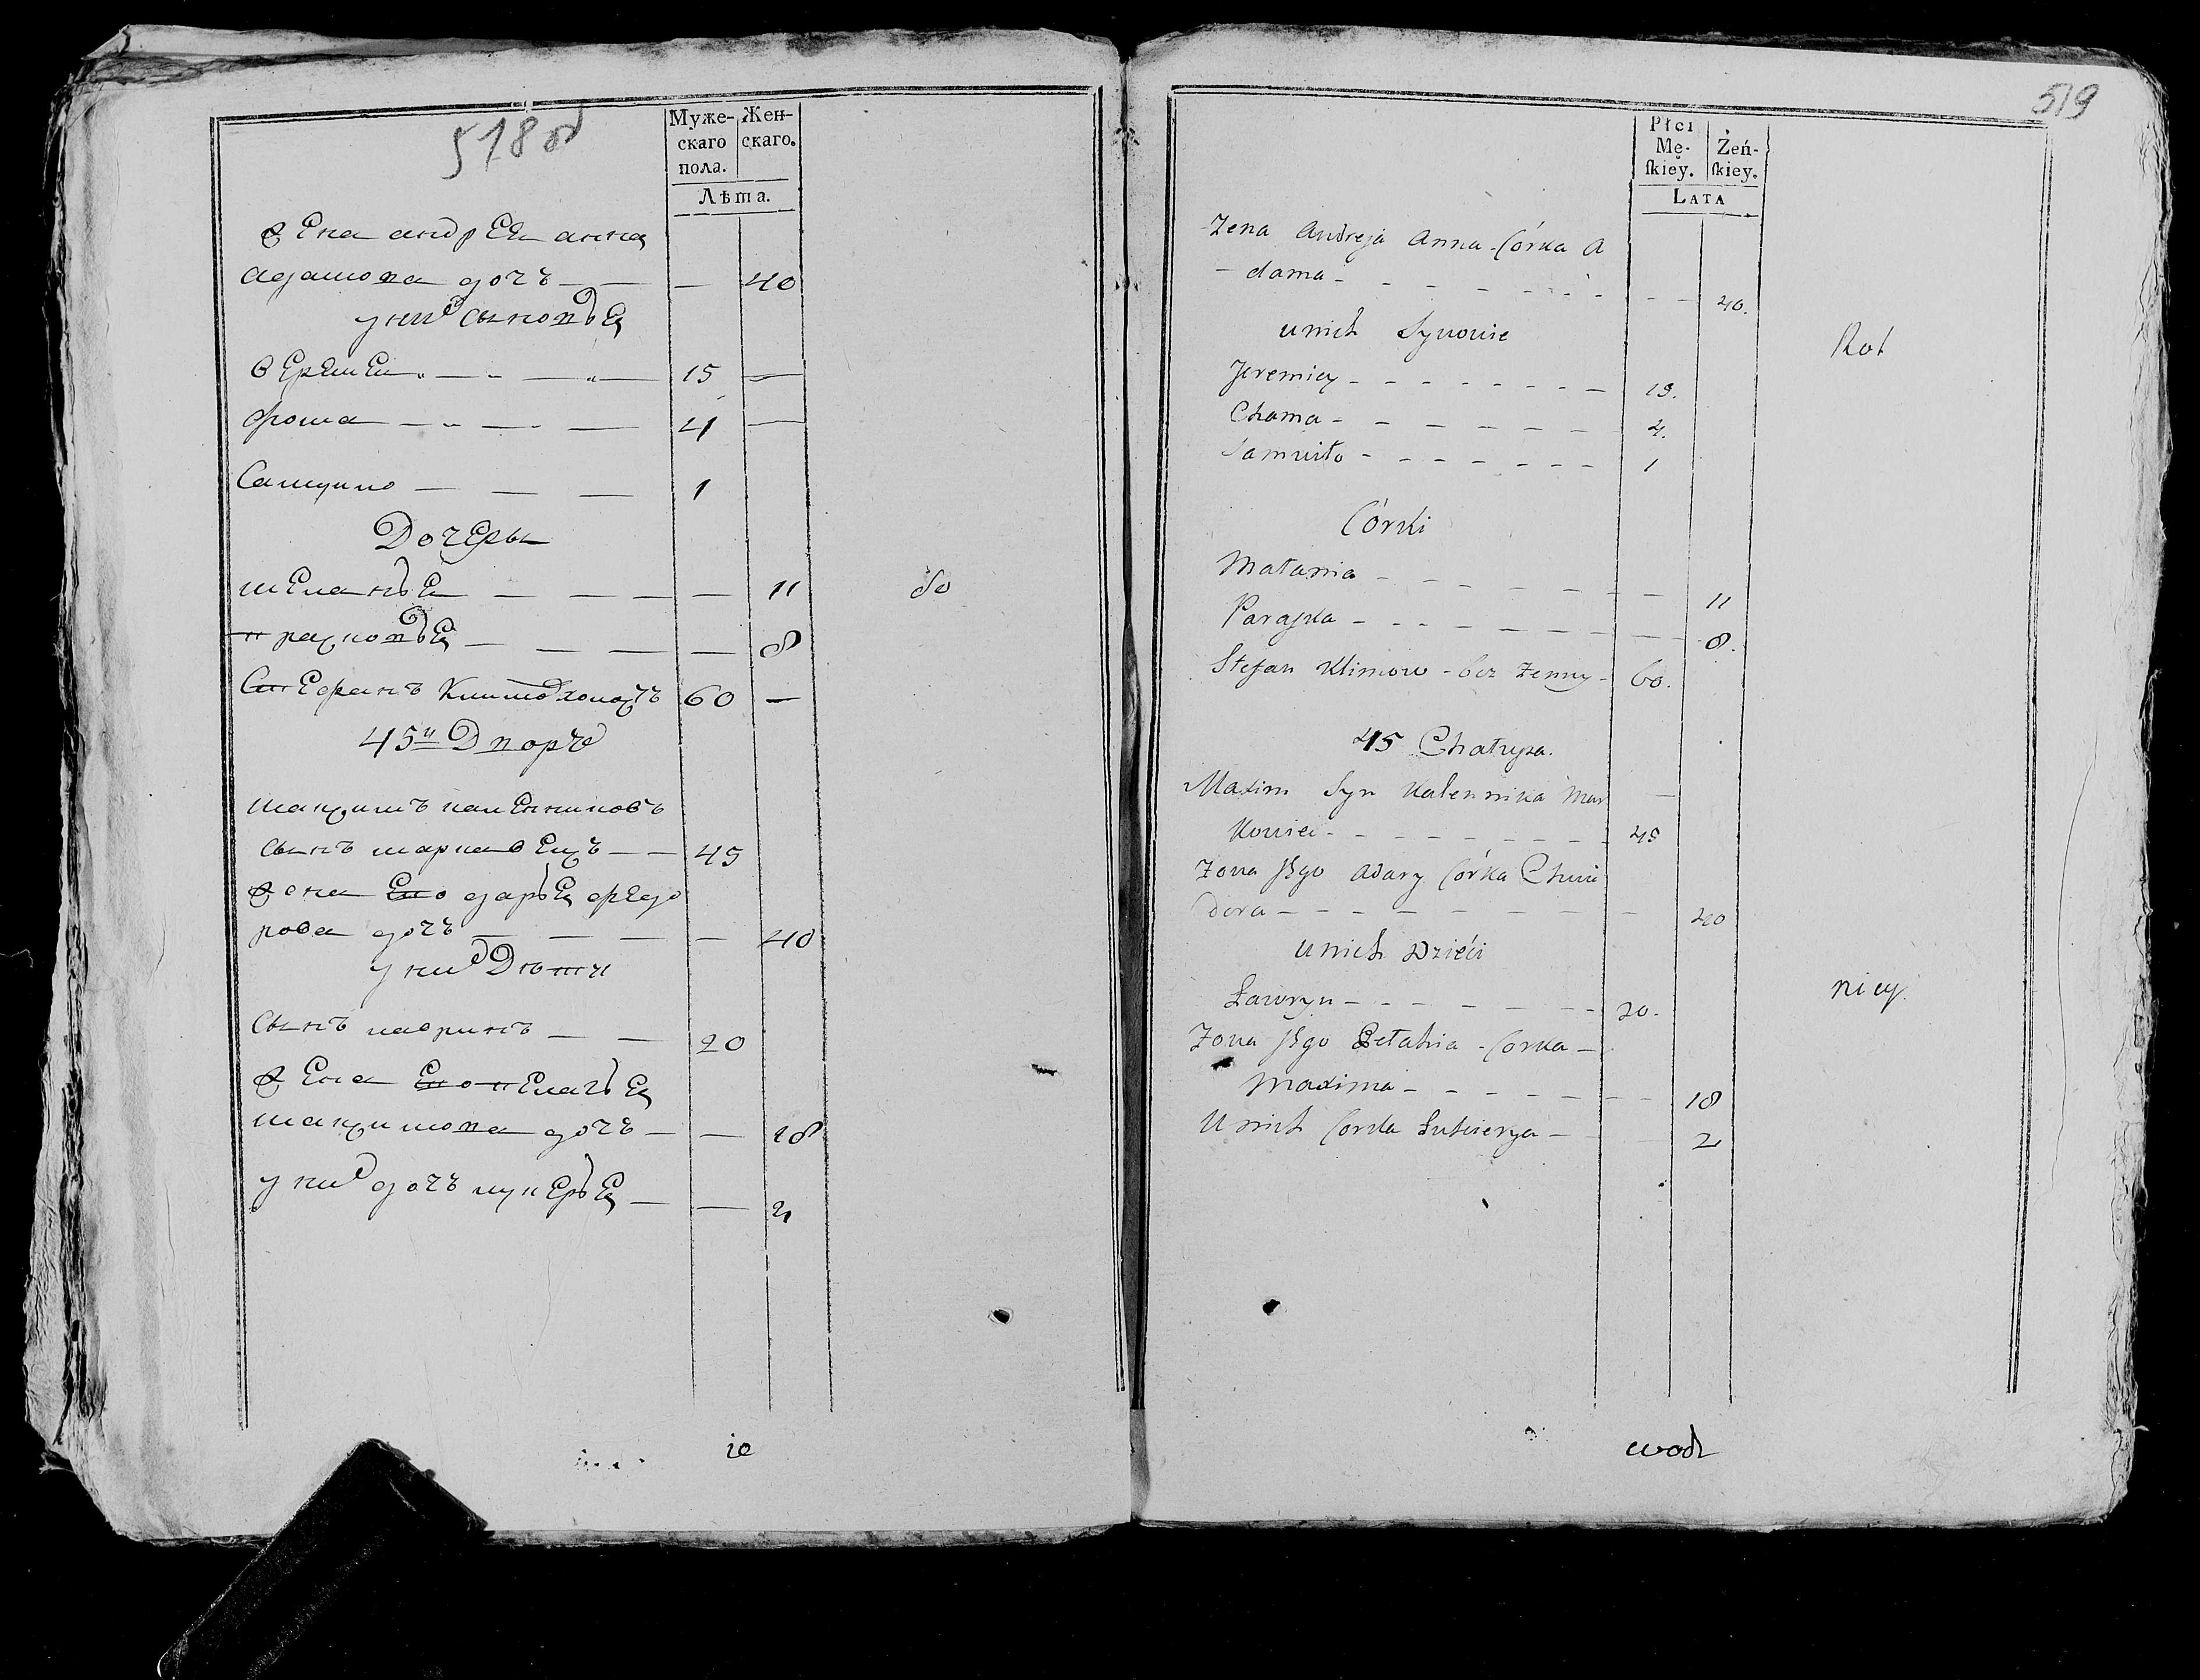 518 об
Муже-
скаго
пола.
Жен-
скаго.
Лѣта.
жена андрея анна
адамова дочъ — — — 40
у них сыновья
еремей — — — 15 —
фома — — — 4 —
Самуило — — — 1
Дочеры
меланья — — — — 11
— — — — 8
Стефанъ Климов холостъ 60 —
45й Дворъ
максимъ калениковъ
сынъ марковецъ — — 45
жона ево дарья федо
рова дочъ — — — — 40
у них Дѣти
сынъ лавринъ — — 20
жена ево пелагья
максимова дочъ — — 18
у них дочъ лукерья — — 2
до
ie
519
Płci
Mę-
ſkiey.
Żeń-
ſkiey.
LATA
Zena Andreja Anna Córka A
dama - - - - - - - 40.
u nich Synowie
Jeremiey - - - - - - - 15.
Choma - - - - - - 4.
Samuiło - - - - - - - 1
Córki
Małania - - - - - - - 11
Paraska - - - - - - - - 8.
Stefan Klimow - bez zenny - 60.
45 Chałupa.
Maxim Syn Kalennika Mar
kowiec - - - - - - - 45
Zona Jego Adary Córka Chwie
dora - - - - - - - - 40
u nich Dzieći
Ławryn - - - - - - 20.
Zona Jego Pełahia - Corka -
Maxima - - - - - - - 18
U nich Corka Łukierya - 2
Rot
niey.
wod